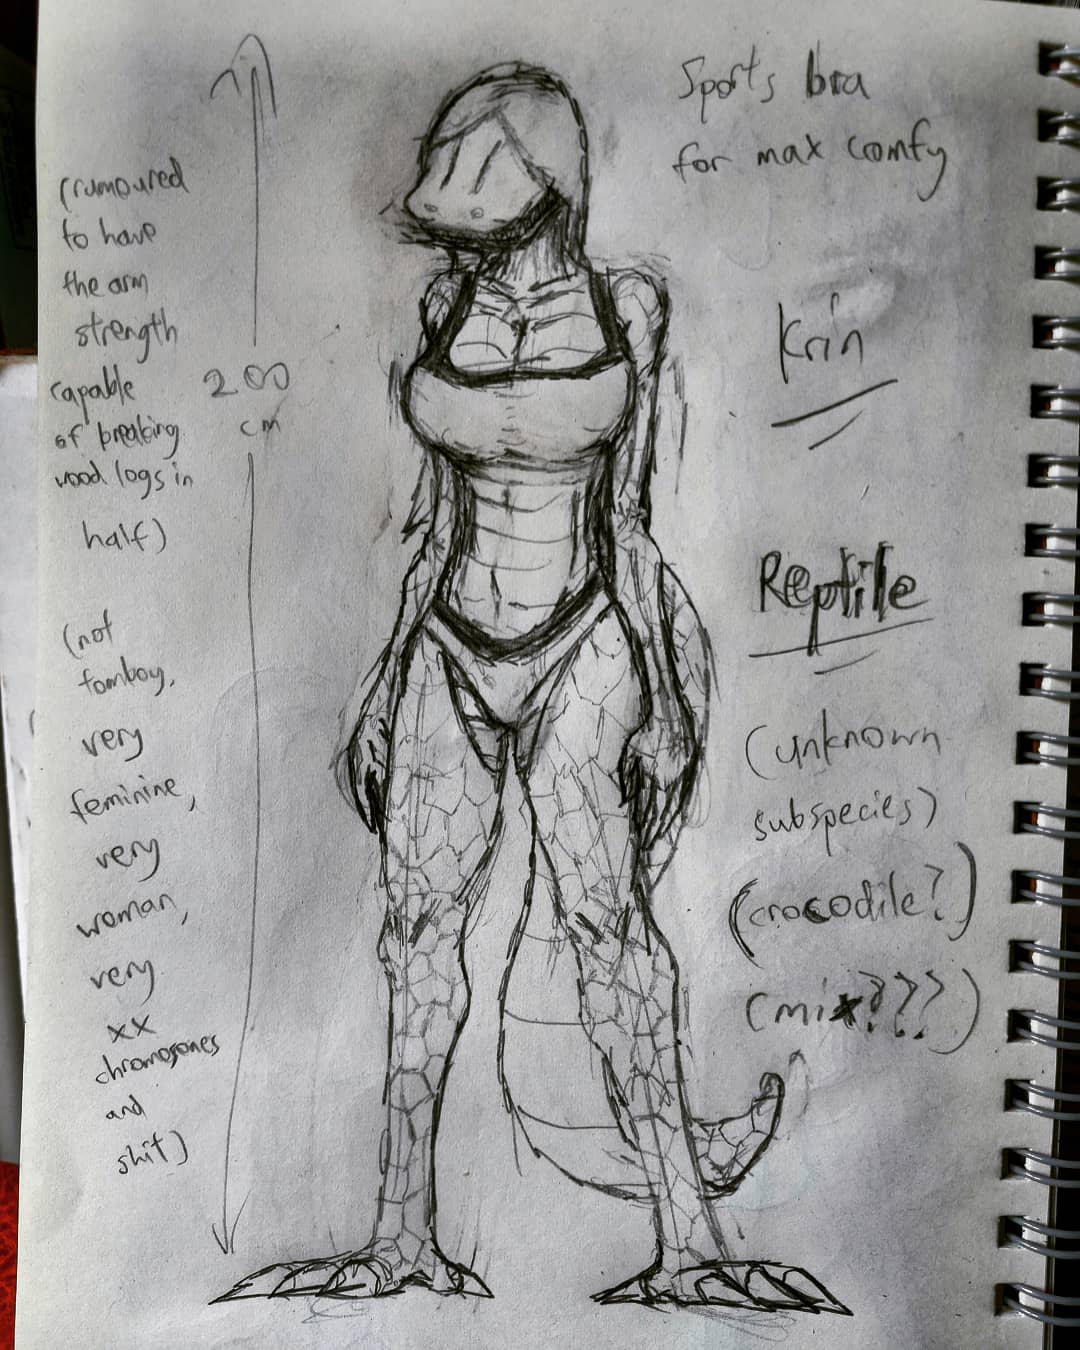 Sports bra
for max comfy
(rumoured
to have
the arm
strength
capable
of breaking
wood logs in
half)
200
cm
Krin
Reptile
(not
tomboy,
very
feminine,
very
woman,
very
xx
chromosones
and
shit)
(unknown
subspecies)
(crocodile?)
(mix???)